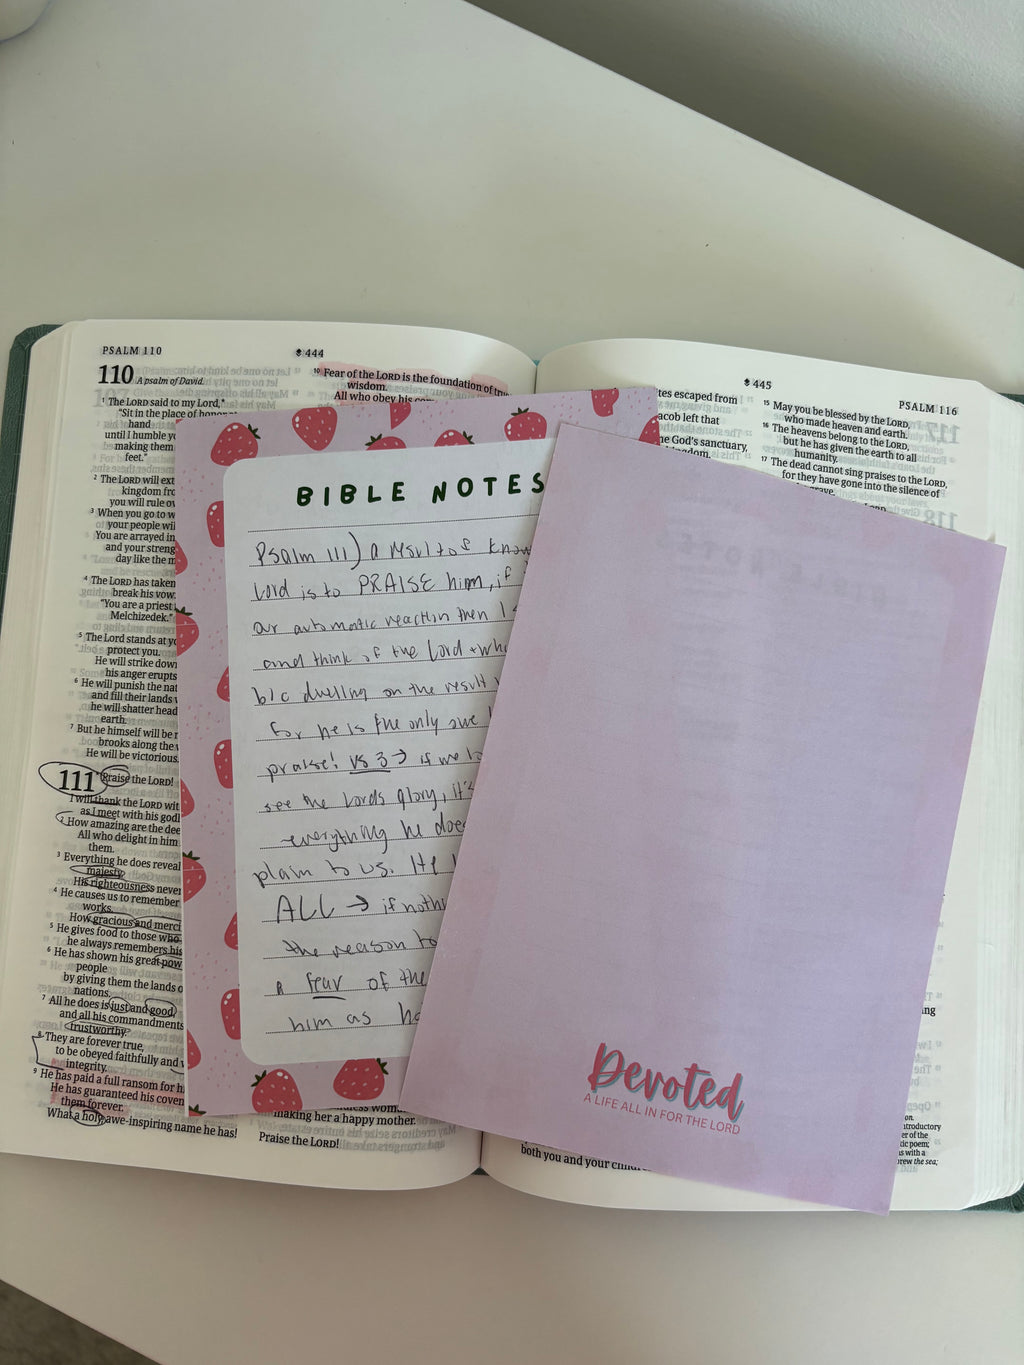 PSALM 110
444
110 A psalm of David.
1 The LORD said to my Lord,
"Sit in the place of honor
hand
until I humble
making them
feet."
2 The LORD will ext
kingdom fro
you will rule ov
3 When you go to w
your people wil
You are arrayed in
and your streng
day like the m
4 The LORD has taken
break his vow:
"You are a priest
Melchizedek."
5 The Lord stands at yo
protect you.
He will strike down
his anger erupts
6 He will punish the nat
and fill their lands
he will shatter head
earth.
7 But he himself will be r
brooks along the
He will be victorious.
111 Praise the LORD!
I will thank the LORD wit
as I meet with his godl
2 How amazing are the dee
All who delight in him
them.
3 Everything he does reveal
majesty
His righteousness never
4 He causes us to remember
works.
How gracious and merci
5 He gives food to those who
he always remembers his
6 He has shown his great pow
people
by giving them the lands o
nations.
7 All he does is just and good,
and all his commandments
trustworthy.
8 They are forever true,
to be obeyed faithfully and
integrity.
9 He has paid a full ransom for h
He has guaranteed his coven
them forever.
What a holy, awe-inspiring name he has!
10 Fear of the LORD is the foundation of true
wisdom.
All who obey his
making her a happy mother.
Praise the LORD!
BIBLE NOTES
Psalm 111) a result of know
Lord is to PRAISE him, if
our automatic reaction then I
and think of the Lord + who
b/c dwelling on the result
for he is the only one
praise! vs 3 → if we
see the Lords glory, it's
everything he does
plain to us. He
ALL → if noth
the reason to
a fear of the
him as
445
PSALM 116
tes escaped from
acob left that
he God's sanctuary,
15 May you be blessed by the LORD,
who made heaven and earth.
16 The heavens belong to the LORD,
but he has given the earth to all
humanity.
17 The dead cannot sing praises to the LORD,
for they have gone into the silence of
both you and your
ing
on.
troductory
er of the
ic poem;
s with a
rew the sea;
Devoted
A LIFE ALL IN FOR THE LORD